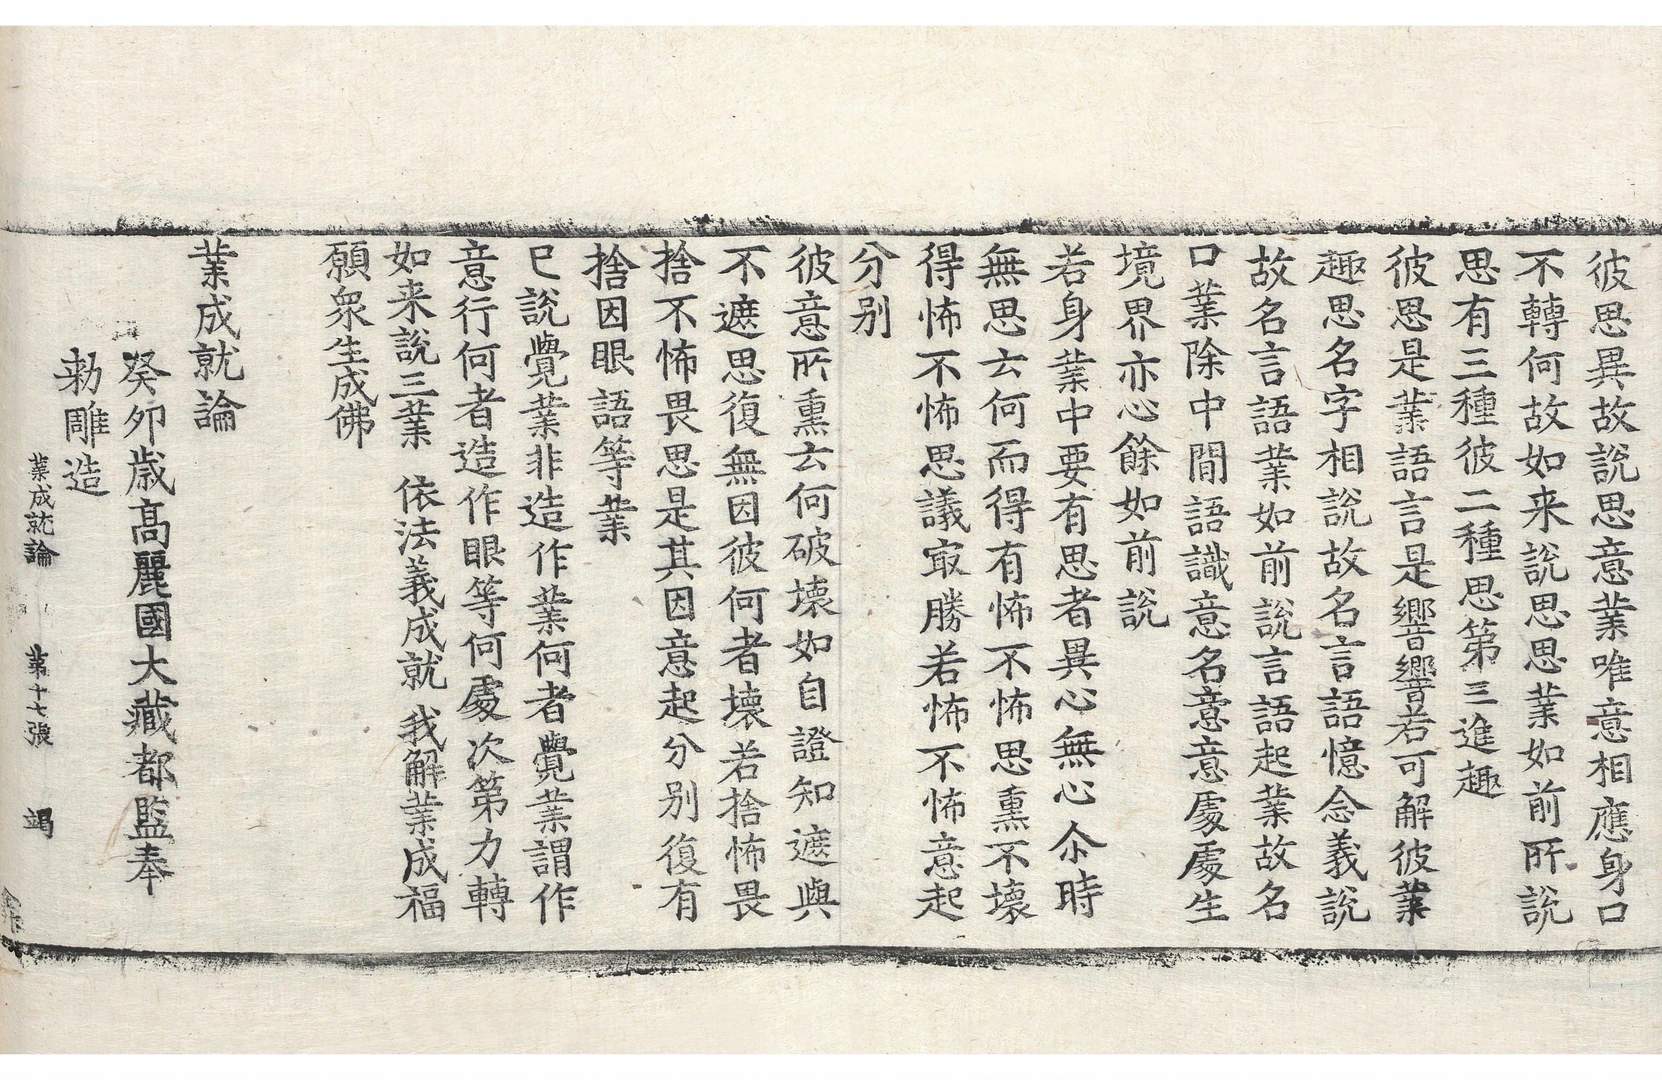 彼思異故說思意業唯意相應身口
不轉何故如来說思思業如前所說
思有三種彼二種思第三進趣
彼思是業語言是響響若可解彼業
趣思名字相說故名言語憶念義說
故名言語業如前說言語起業故名
口業除中間語識意名意意處處生
境界亦心餘如前說
若身業中要有思者異心無心尒時
無思云何而得有怖不怖思熏不壞
得怖不怖思議㝡勝若怖不怖意起
分别
彼意所熏云何破壞如自證知遮與
不遮思復無因彼何者壞若捨怖畏
捨不怖畏思是其因意起分别復有
捨因眼語等業
已說覺業非造作業何者覺業謂作
意行何者造作眼等何處次第力轉
如来說三業 依法義成就 我解業成福
願衆生成佛
業成就論
癸卯歲高麗國大藏都監奉
勑雕造
業成就論 第十七張 竭